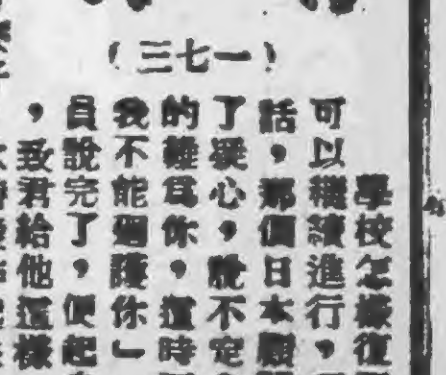 （一七三）
學校怎樣復
可以繼續進行，
話，那個日本顧
了疑心，說不定
的難爲你，這時
我不能迴護你」
員說完了，便起
，致君給他這樣